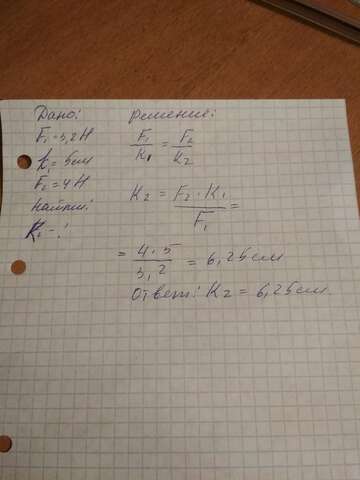 Дано:
F₁ = 3,2 Н
K₁ = 5 см
F₂ = 4 Н
Найти:
K₂ - ?
Решение:
F₁/K₁ = F₂/K₂
K₂ = F₂ · K₁ / F₁ =
= 4 · 5 / 3,2 = 6,25 см
Ответ: K₂ = 6,25 см